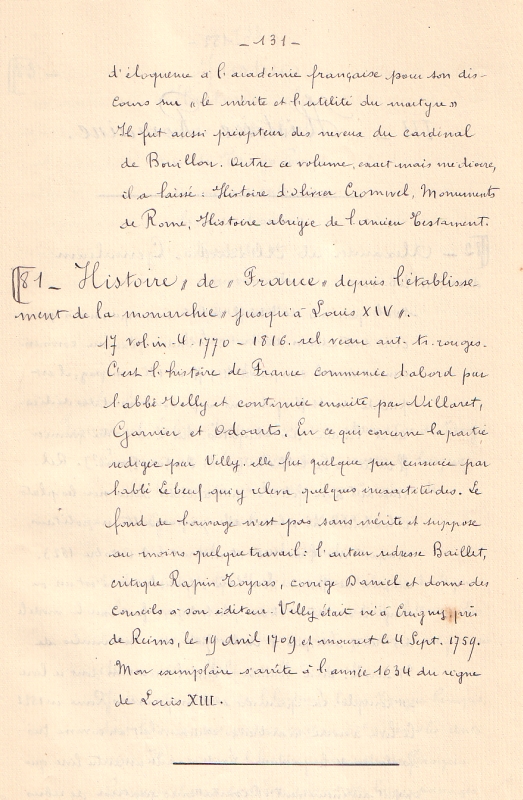 - 131 -
d'éloquence à l'académie française pour son dis-
cours sur "le mérite et l'utilité du martyre»
Il fut aussi précepteur des neveux du cardinal
de Bouillon. Outre ce volume, exact mais médiocre,
il a laissé : Histoire d'olivier Cromwel, Monuments
de Rome, Histoire abrégée de l'ancien Testament.
81 - Histoire " de "France" depuis l'établisse-
ment de la monarchie " jusqu'à Louis XIV".
17 vol. in-4. 1770 - 1816. rel veau ant. tr. rouges.
C'est l'histoire de France commencée d'abord par
l'abbé Velly et continuée ensuite par Villaret,
Garnier et Odoarts. En ce qui concerne la partie
redigée par Velly. elle fut quelque peu censurée par
l'abbé Lebeuf qui y releva quelques inexactitudes. Le
fond de l'ouvrage n'est pas sans mérite et suppose
au moins quelque travail : l'auteur redresse Baillet,
critique Rapin Toyras, corrige Daniel et donne des
conseils à son éditeur. Velly était né à Crugny, près
de Reims, le 19 Avril 1709 et mourut le 4 Sept. 1759.
Mon exemplaire s'arrête à l'année 1634 du règne
de Louis XIII.